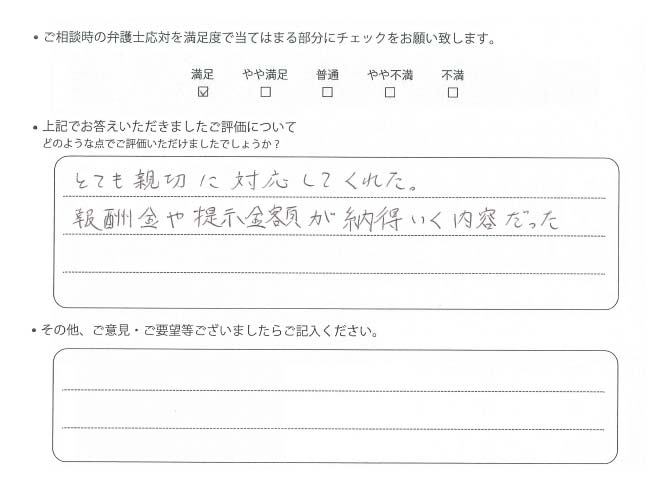 • ご相談時の弁護士応対を満足度で当てはまる部分にチェックをお願い致します。
満足 やや満足 普通 やや不満 不満
☑ □ □ □ □
• 上記でお答えいただきましたご評価について
どのような点でご評価いただけましたでしょうか？
とても親切に対応してくれた。
報酬金や提示金額が納得いく内容だった
• その他、ご意見・ご要望等ございましたらご記入ください。